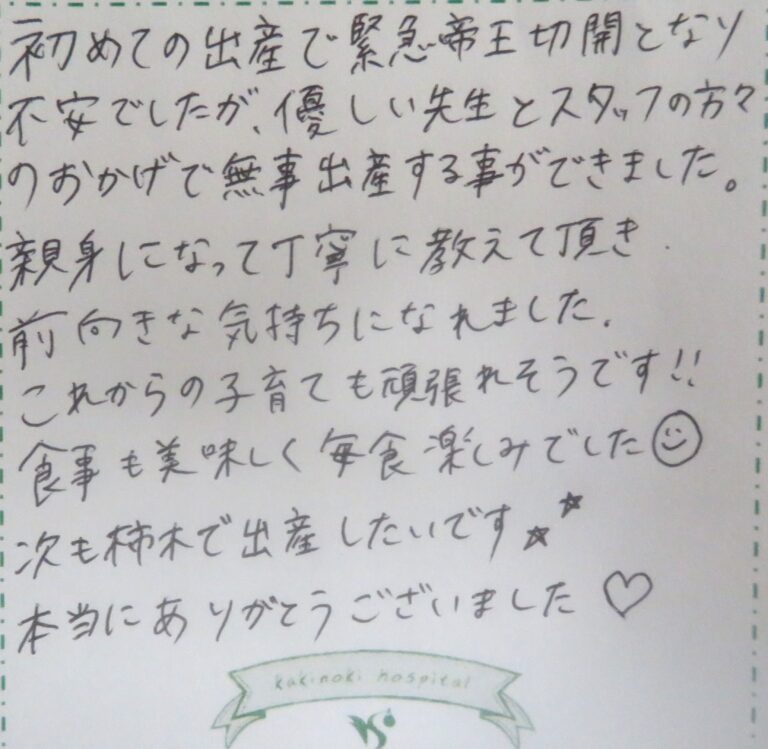 初めての出産で緊急帝王切開となり
不安でしたが、優しい先生とスタッフの方々
のおかげで無事出産する事ができました。
親身になって丁寧に教えて頂き
前向きな気持ちになれました。
これからの子育ても頑張れそうです!!
食事も美味しく毎食楽しみでした☺
次も柿木で出産したいです☆☆
本当にありがとうございました♡
kakinoki hospital